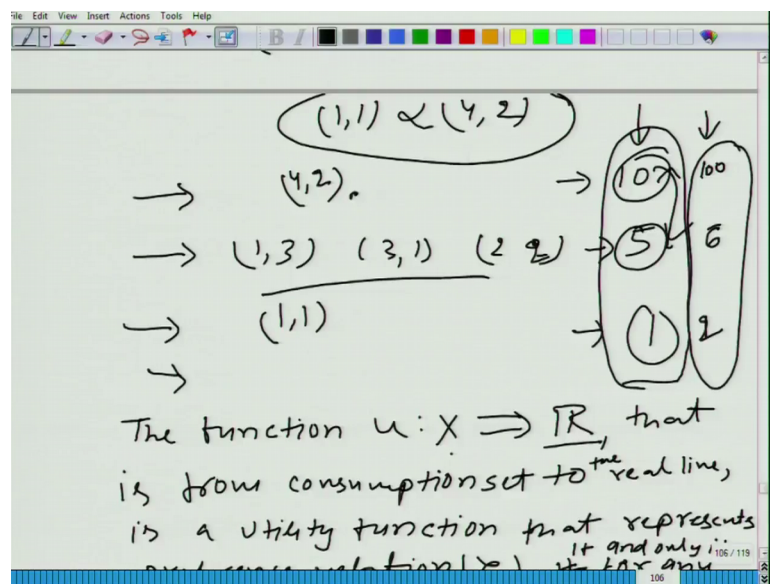 File Edit View Insert Actions Tools Help
B I
(1,1) ∝ (4,2)
(4,2).
10 100
(1,3) (3,1) (2 2) 5 6
(1,1) 1 2
The function u : X ⇒ ℝ, that
is from consumption set to the real line,
is a utility function that represents
if and only
for any
106 / 119
106